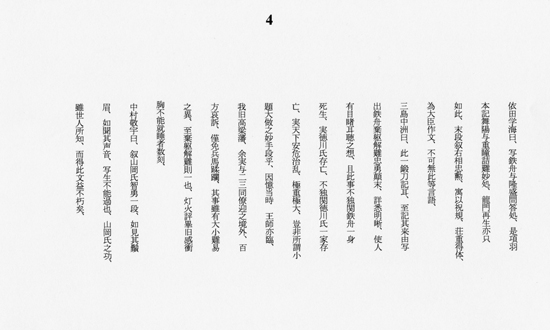 4
依田学海曰、写鉄舟与隆盛問答処、是項羽
本記舞陽与重瞳詰難妙処、龍門再生亦只
如此、末段叙右相忠勲、寓以祝規、荘重得体、
為大臣作文、不可無此等言語、
三島中洲曰、此一鍛刀記耳、至記其来由写
出鉄舟棄躯解難忠勇顛末、詳悉明晰、使人
有目睹耳聴之想、且此事不独関鉄舟一身
死生、実徳川氏存亡、不独関徳川氏一家存
亡、実天下安危治乱、極重極大、豈非所謂小
題大做之妙手段乎、因憶当時 王師亦臨、
我旧高梁藩、余実与二三同僚迎之境外、百
方哀訴、僅免兵馬蹂躙、其事雖有大小難易
之異、至棄躯解難則一也、灯火評畢旧感衝
胸不能就睡者数刻、
中村敬宇曰、叙山岡氏智勇一段、如見其鬚
眉、如聞其声音、写生不能過也、山岡氏之功、
雖世人所知、而得此文益不朽矣、